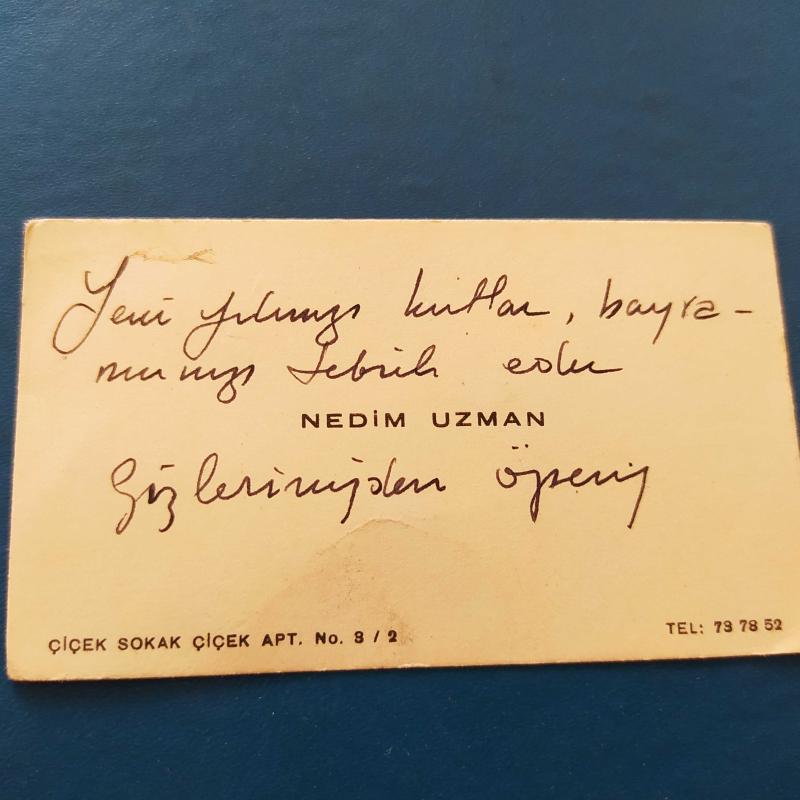 Yeni yılınızı kutlar, bayra-
mınızı tebrik eder
NEDİM UZMAN
Gözlerinizden öperiz
ÇİÇEK SOKAK ÇİÇEK APT. No. 3 / 2
TEL: 73 78 52